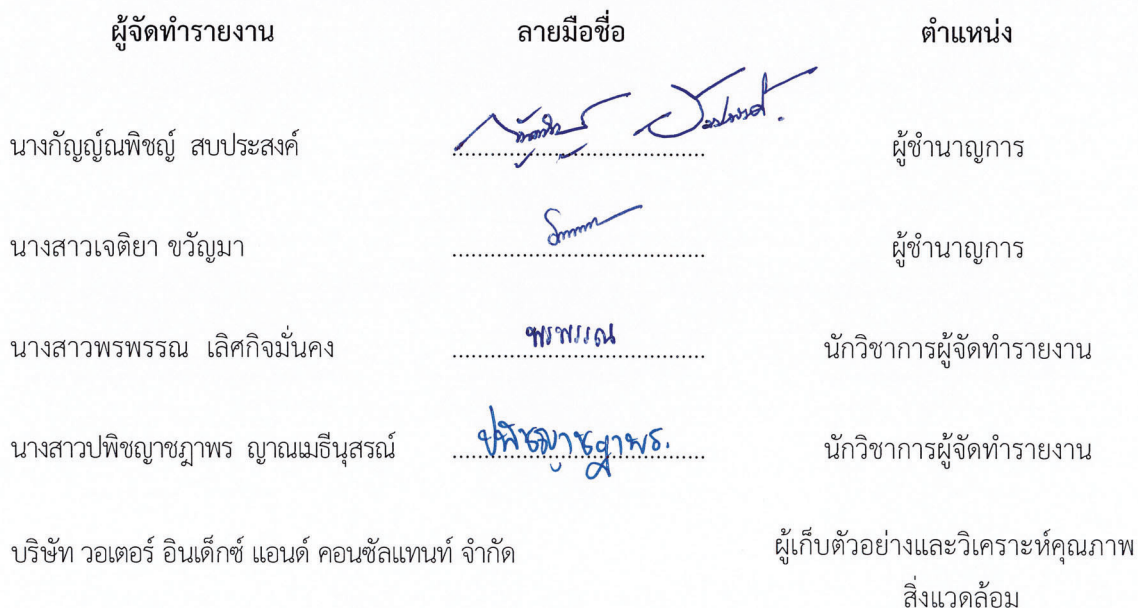 ผู้จัดทำรายงาน ลายมือชื่อ ตำแหน่ง
นางกัญญ์ณพิชญ์ สบประสงค์ ผู้ชำนาญการ
นางสาวเจติยา ขวัญมา ผู้ชำนาญการ
นางสาวพรพรรณ เลิศกิจมั่นคง พรพรรณ นักวิชาการผู้จัดทำรายงาน
นางสาวปพิชญาชฎาพร ญาณเมธีนุสรณ์ ปพิชญาชฎาพร. นักวิชาการผู้จัดทำรายงาน
บริษัท วอเตอร์ อินเด็กซ์ แอนด์ คอนซัลแทนท์ จำกัด ผู้เก็บตัวอย่างและวิเคราะห์คุณภาพ
สิ่งแวดล้อม